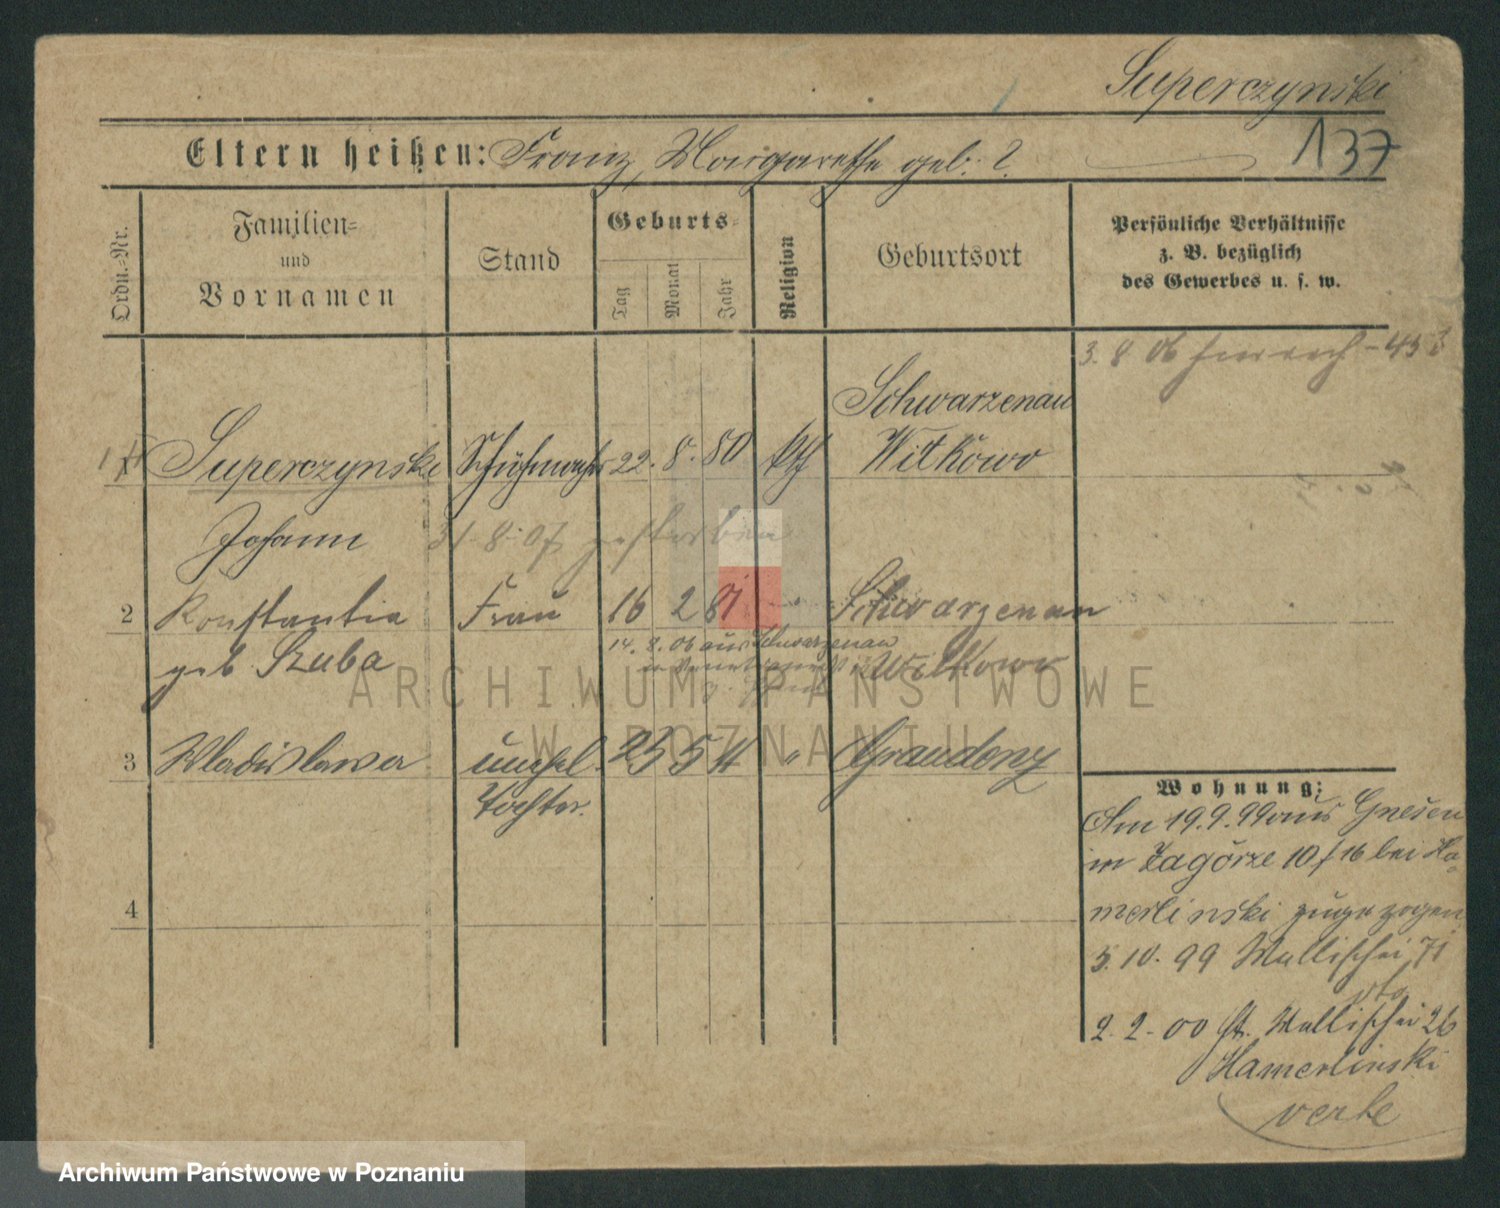 Superczynski
Eltern heißen: Franz, Margarethe geb. ?
137
Ordn.-Nr.
Familien-
und
Vornamen
Stand
Geburts-
Tag
Monat
Jahr
Religion
Geburtsort
Persönliche Verhältnisse
z. B. bezüglich
des Gewerbes u. s. w.
3. 8 06
Schwarzenau
1 Superczynski Schuhmacher 22. 8. 80 kth Witkowo
Johann 31. 8. 07 gestorben
2 Konstantia Frau 16 2 81 Schwarzenau
geb Kuba 14. 8. 06 aus Schwarzenau Witkowo
3 Wladislawa unehel. 23 5 " Graudenz
Tochter.
4
Wohnung:
Am 19.9.99 aus Gnesen
in Zagórze 10/16 bei Ha-
merlinski zugezogen
5. 10. 99 Wallischei 71
2. 2. 00 Wallischei 26
Hamerlinski
verte
ARCHIWUM PAŃSTWOWE
W POZNANIU
Archiwum Państwowe w Poznaniu